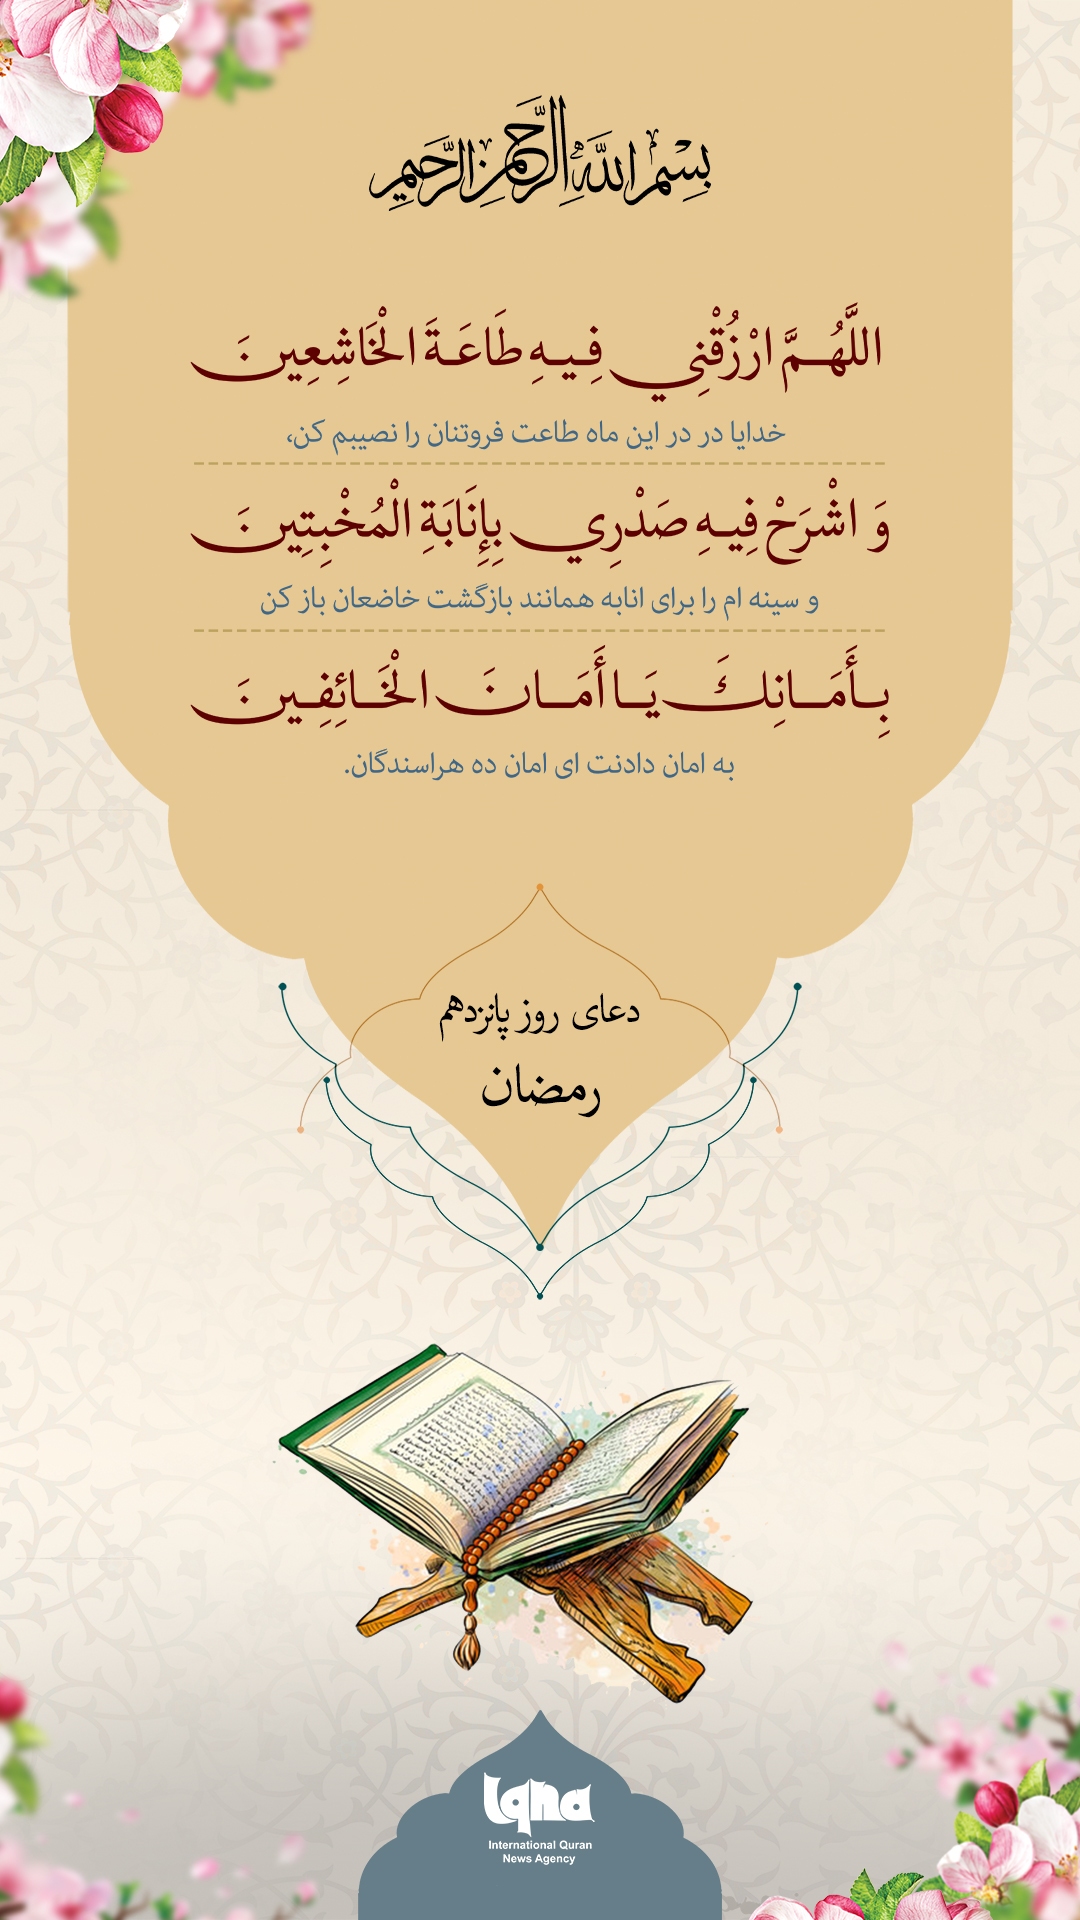 بِسْمِ اللَّهِ الرَّحْمنِ الرَّحيمِ
اللَّهُمَّ ارْزُقْنِي فِيهِ طَاعَةَ الْخَاشِعِينَ
خدایا در در این ماه طاعت فروتنان را نصیبم کن،
وَ اشْرَحْ فِيهِ صَدْرِي بِإِنَابَةِ الْمُخْبِتِينَ
و سینه ام را برای انابه همانند بازگشت خاضعان باز کن
بِأَمَانِكَ يَا أَمَانَ الْخَائِفِينَ
به امان دادنت ای امان ده هراسندگان.
دعای روز پانزدهم
رمضان
Iqna
International Quran
News Agency